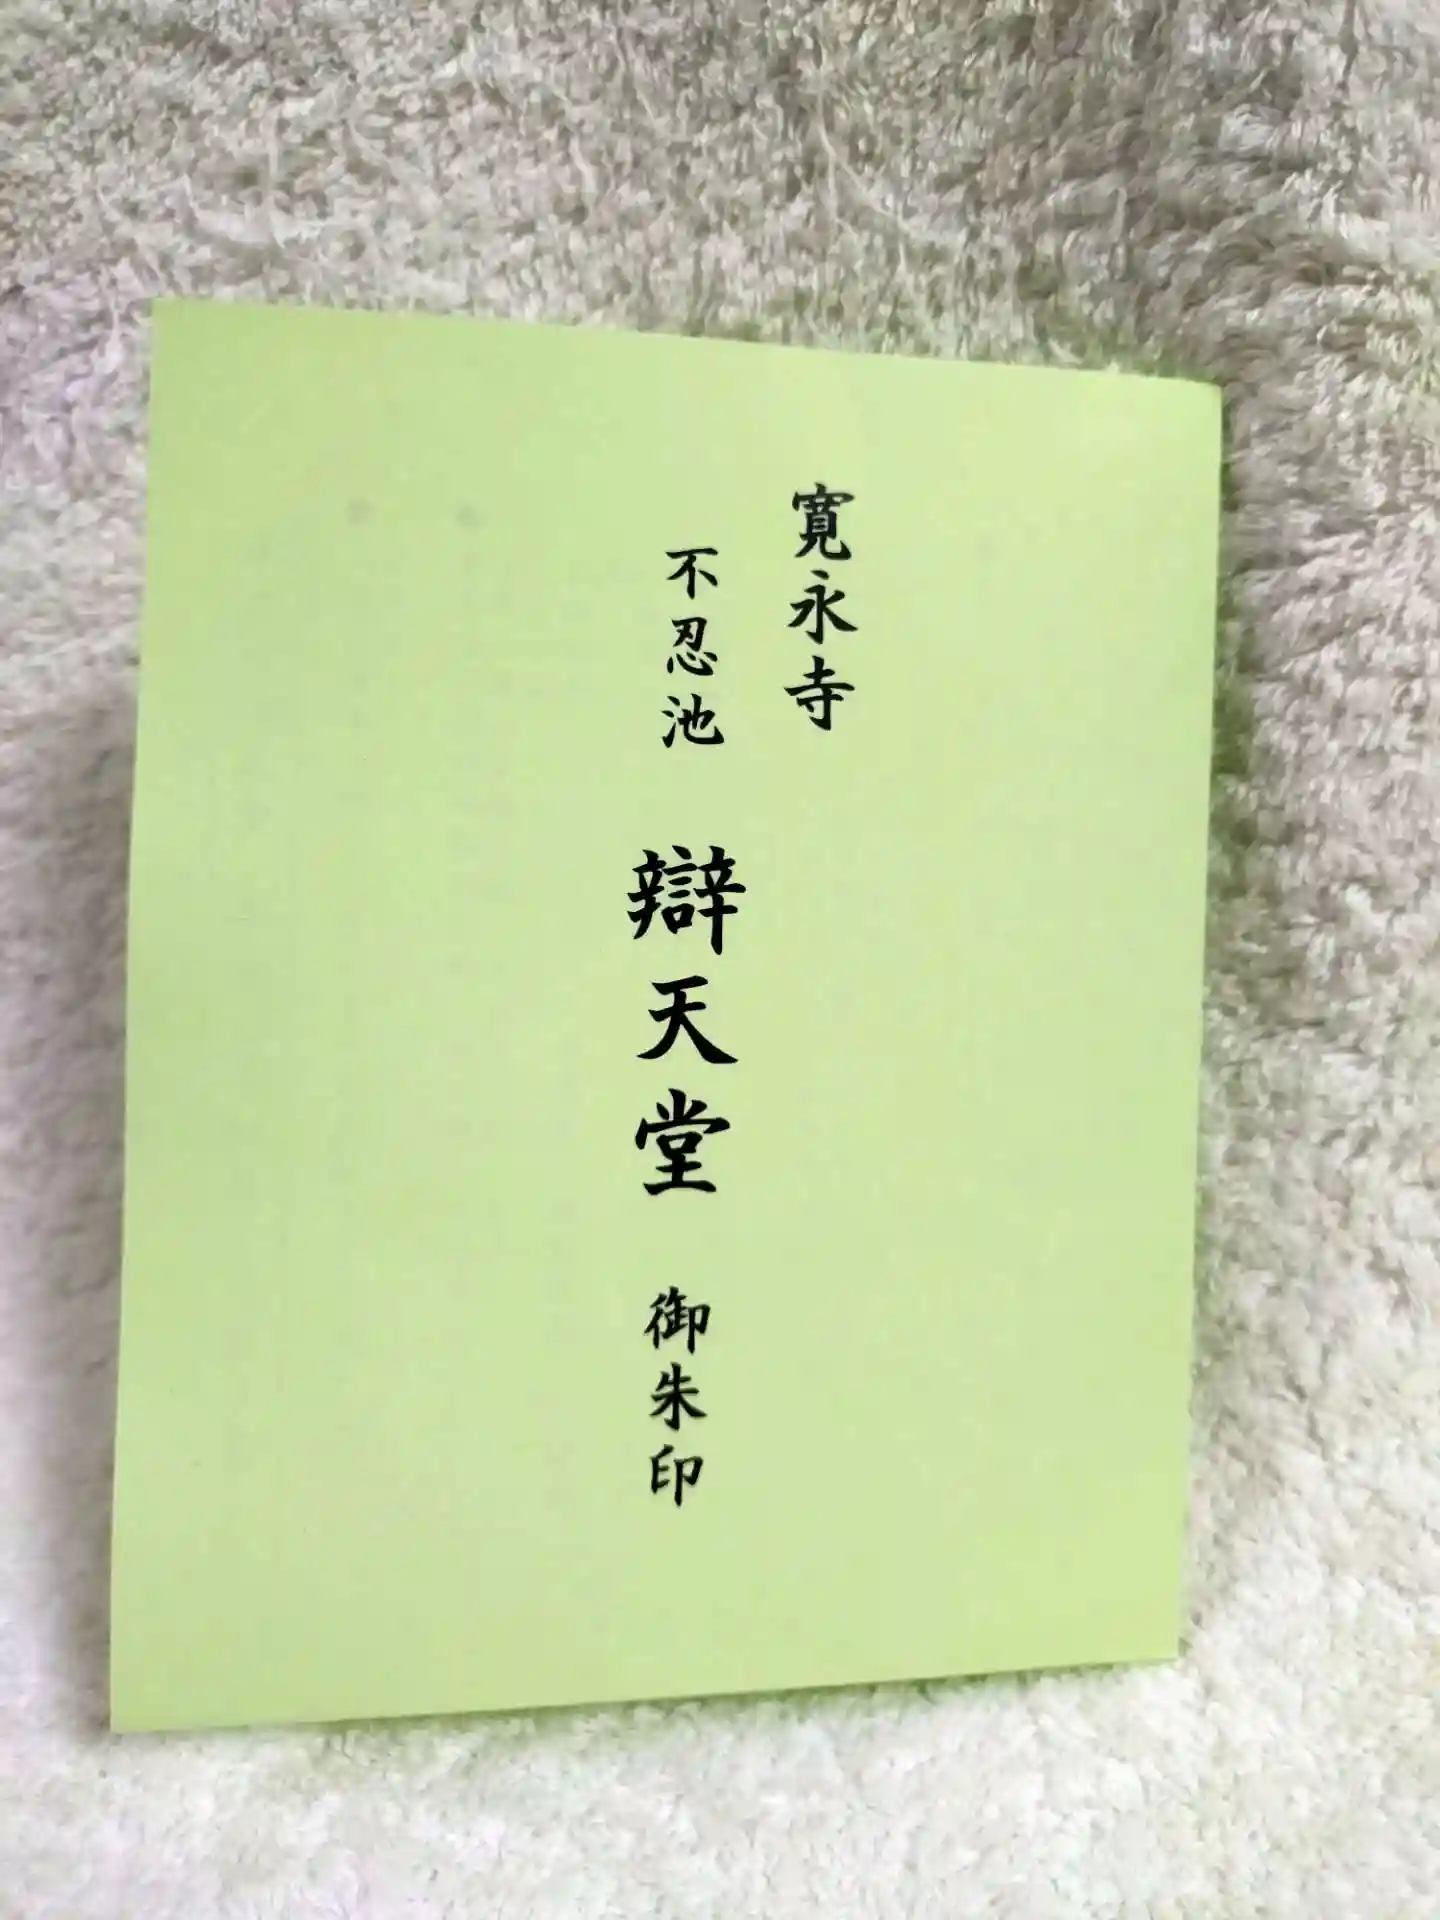 寛永寺
不忍池 辯天堂 御朱印